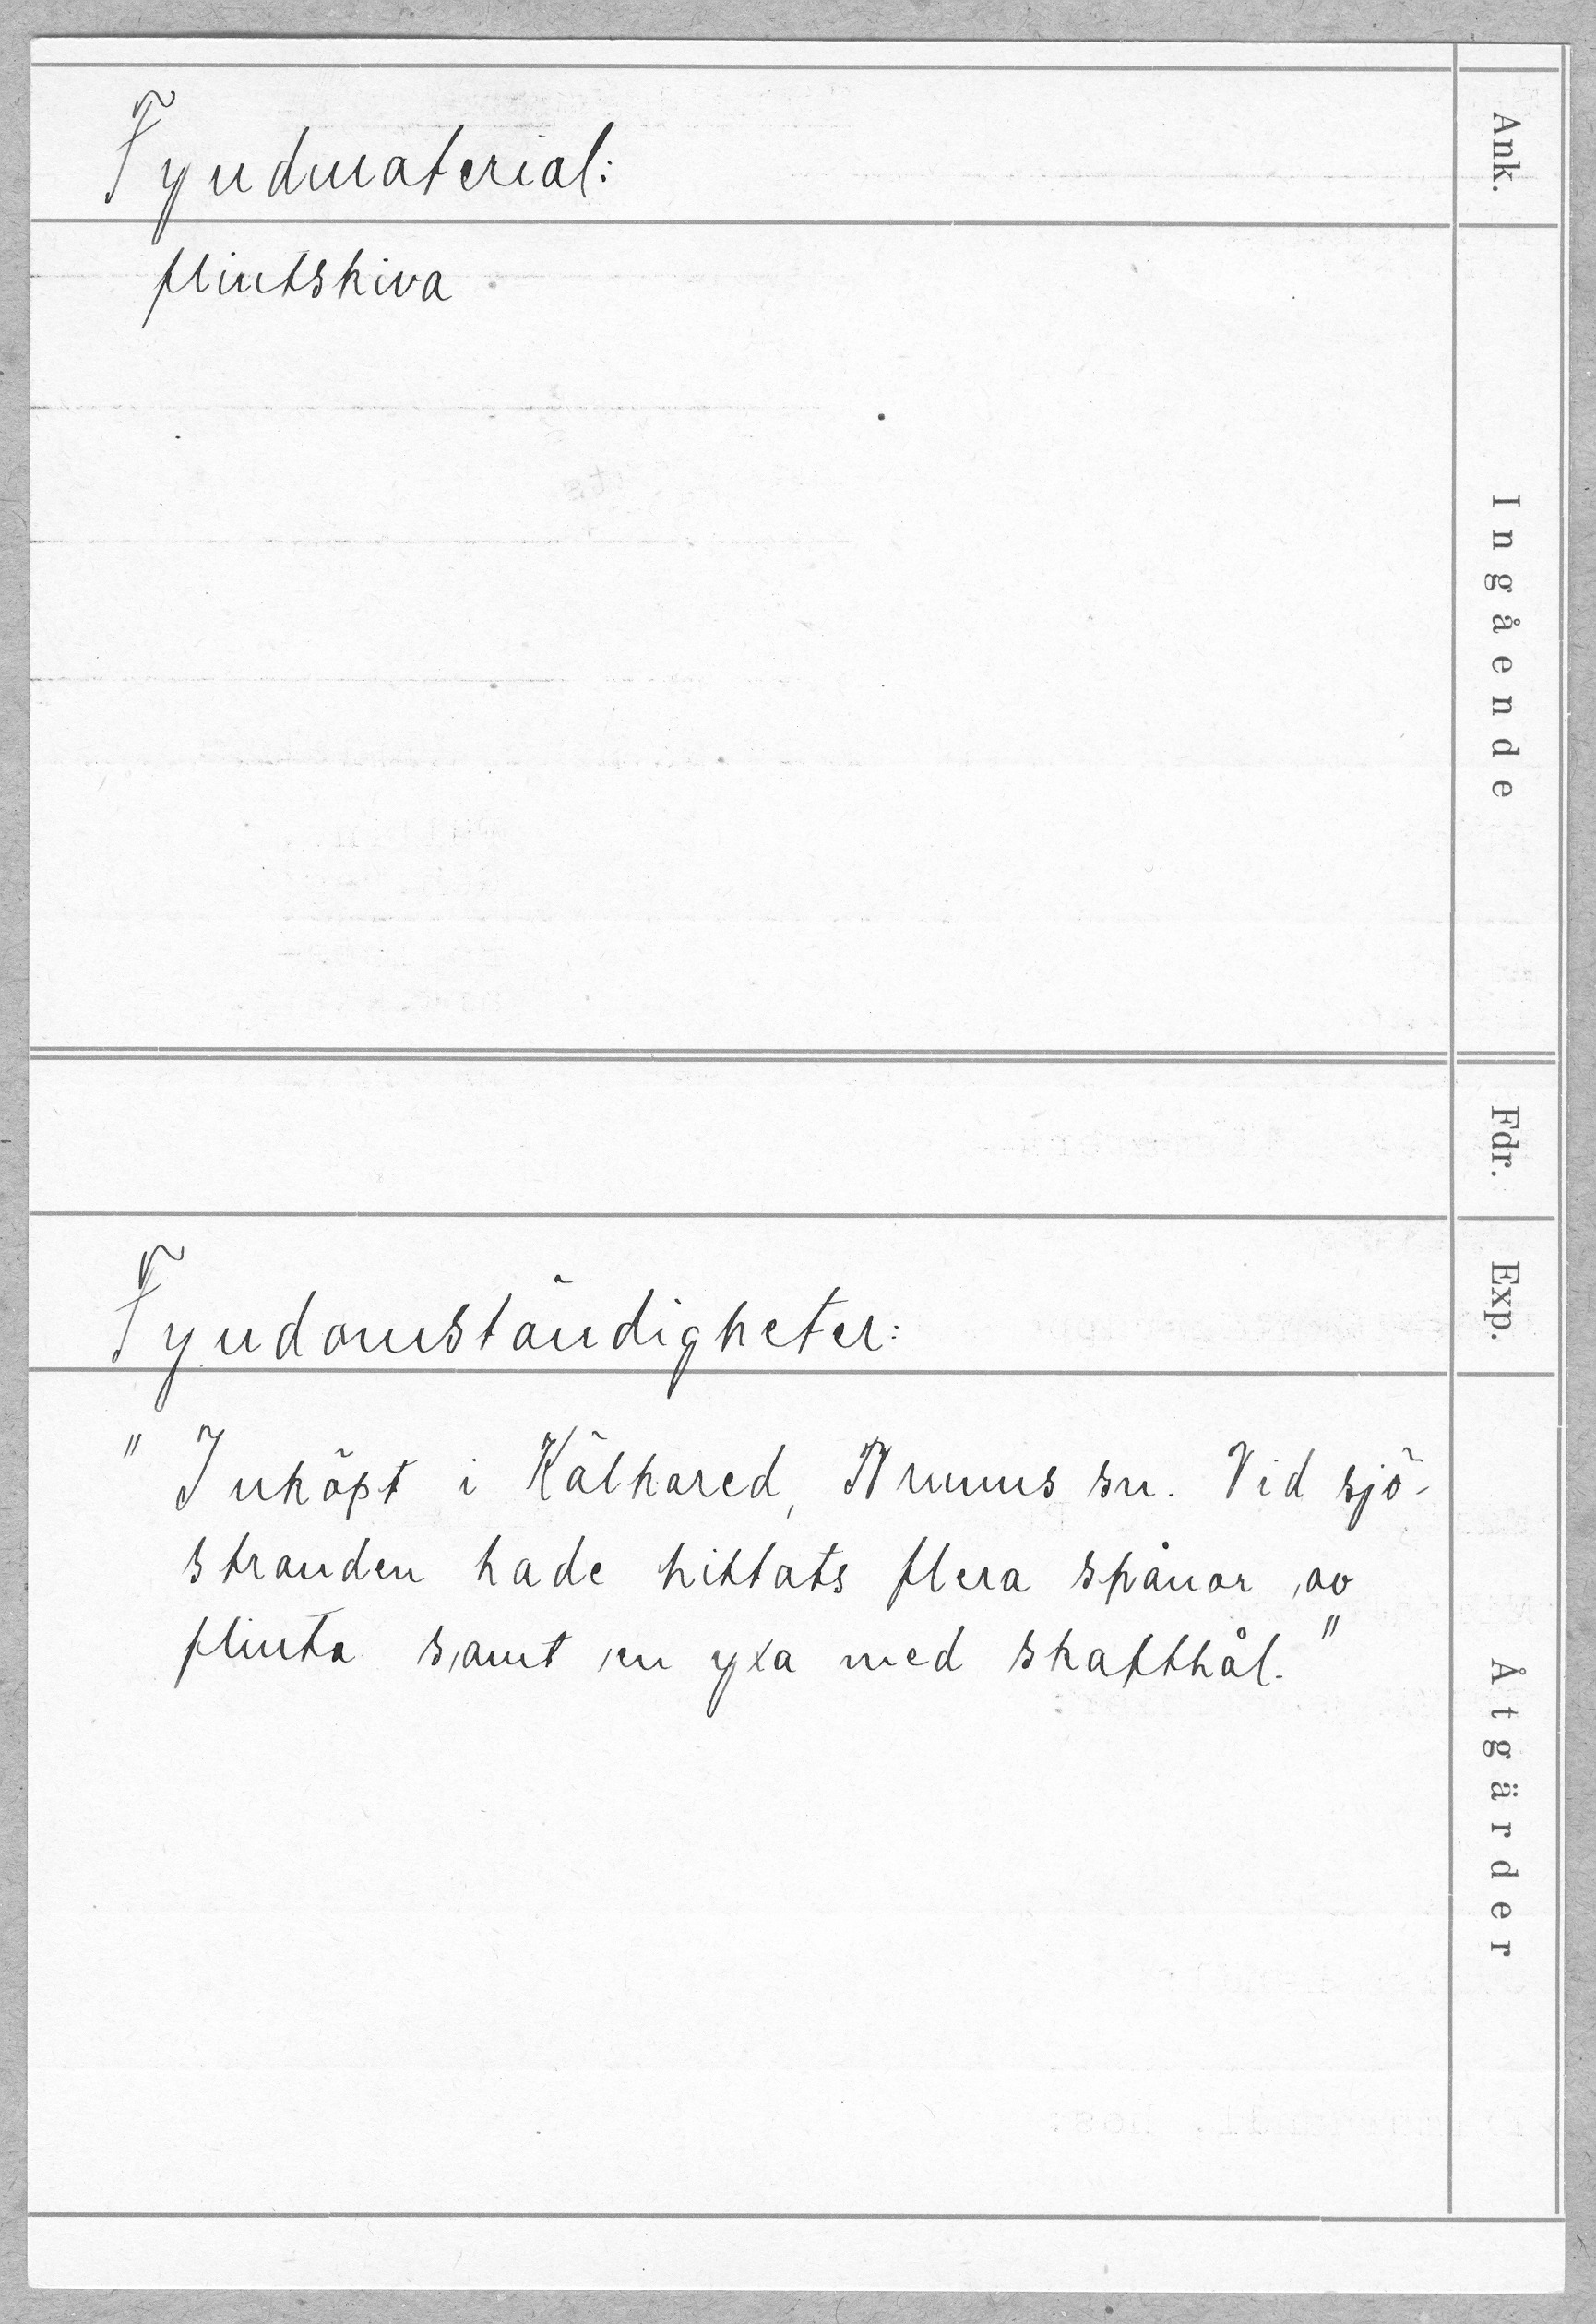 Fyndmaterial:
flintskiva
Fyndomständigheter:
" Inköpt i Kälkared, Brunns sn. Vid sjö-
stranden hade hittats flera spånor av
flinta samt en yxa med skafthål. "
Ank.
Ingående
Fdr.
Exp.
Åtgärder